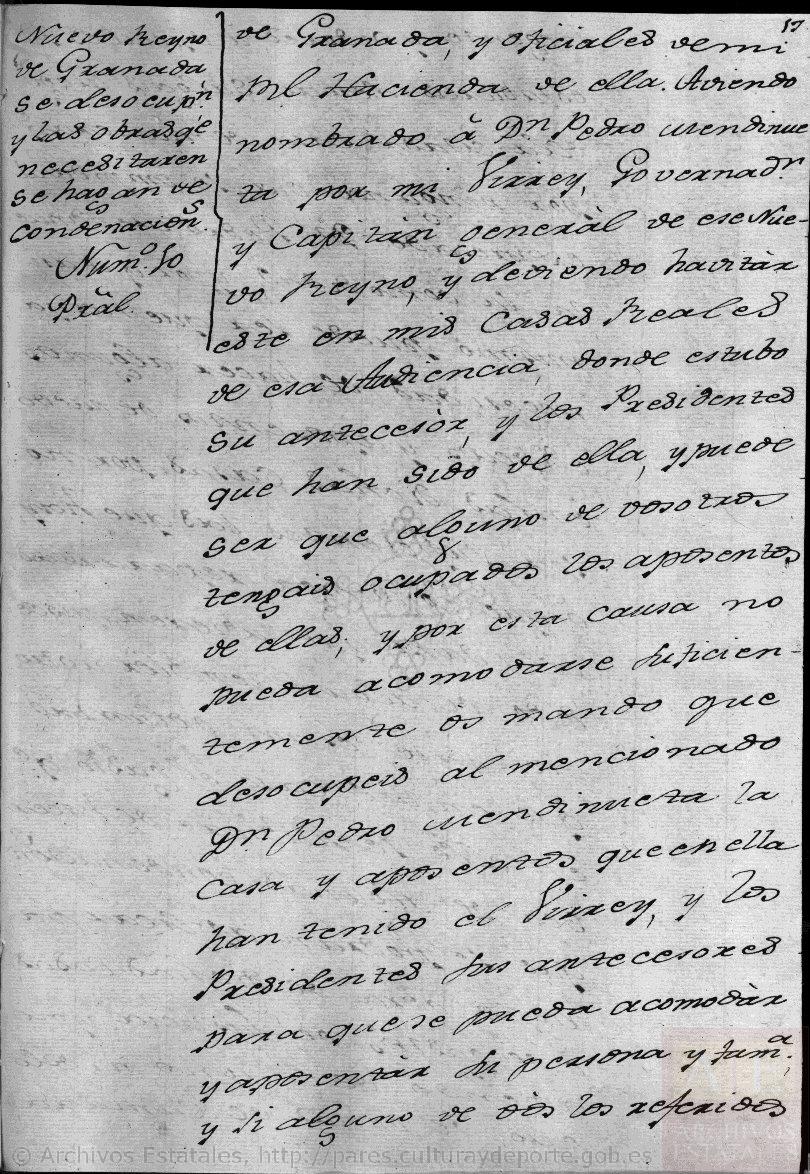 17
Nuevo Reyno
de Granada
se desocupn
y las obras qe
necesitaren
se hagan de
Condenacions.
Numo. 50
Prãl.
de Granada, y oficiales de mi
Rl Hacienda de ella. Aviendo
nombrado â Dn Pedro Mendinue
ta por mi Virrey, Governadr
y Capitàn generàl de ese Nue-
vo Reyno, y deviendo havitàr
este en mis Casas Reales
de esa Audiencia, donde estubo
su antecesòr, y los Presidentes
que han sido de ella, y puede
ser que alguno de vosotros
tengais ocupados los aposentos
de ellas, y por esta causa no
pueda acomodarse suficien-
temente òs mando que
desocupeis al mencionado
Dn Pedro Mendinueta la
Casa y aposentos que en ella
han tenido el Virrey, y los
Presidentes sus antecesores
para que se pueda acomodàr
y aposentàr su persona y fama.,
y si alguno de òòs los referidos
© Archivos Estatales, http://pares.culturaydeporte.gob.es
ARCHIVOS
ESTATALES